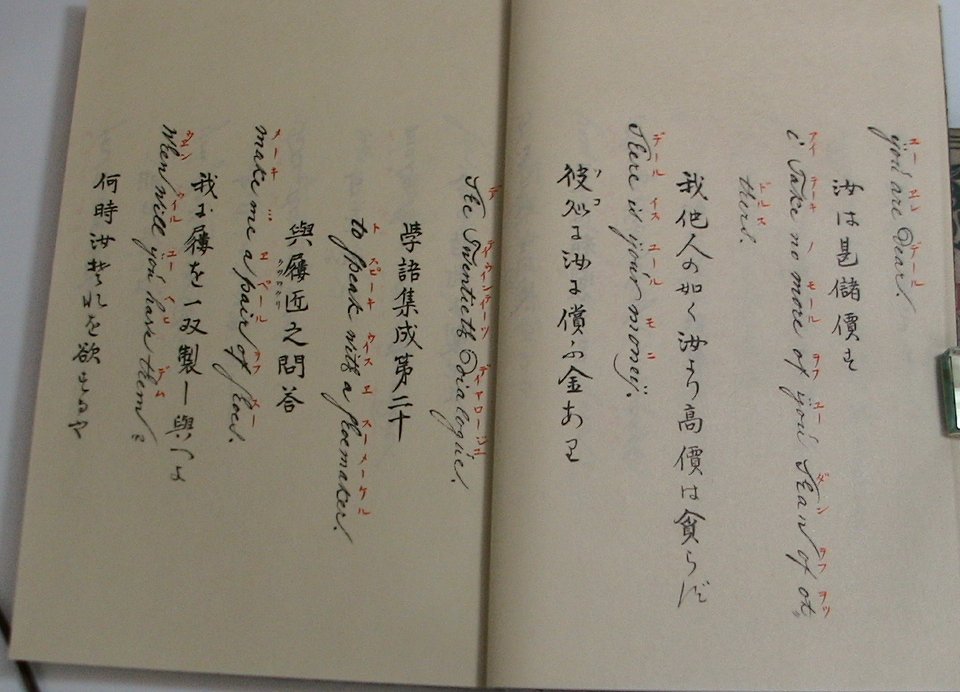 ユー エル デール
you are Dear.
汝は甚儲價す
アイ テーキ ノ モール ヲフ ユー ダン ヲフ ヲツ
i Take no more of you Than of ot„
ドルス
thers.
我他人の如く汝より高價は貪らず
デール イス ユール モニ
There is your money.
彼処に汝に償ふ金あり
デ ディアロージュエ
The Twentieth Dialogue.
學語集成第二十
ト スピーキ ウイス エ スーメーケル
to speak with a shoemaker.
與履匠之問答
メーキ ミ エ ペール ヲフ スー
make me a pair of shoes.
我に履を一双製し與へよ
ウエン ウイル ユー ヘヒ デム
When will you have them?
何時汝其れを欲するや